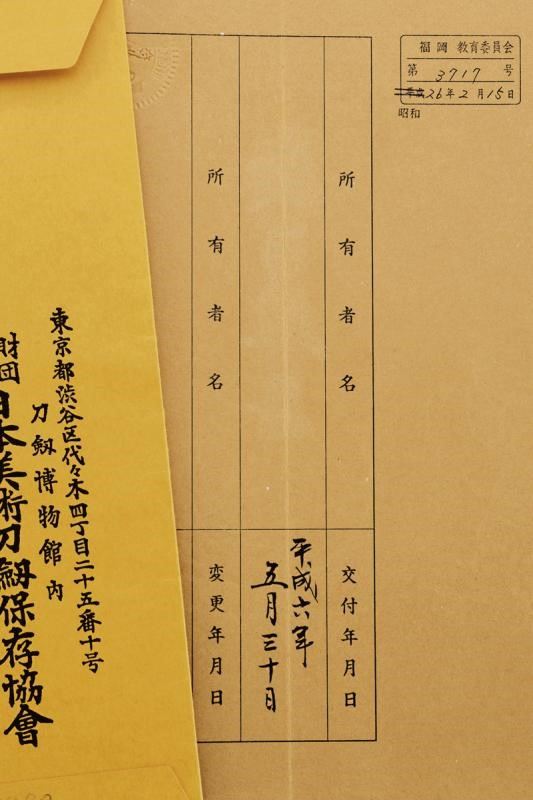 福岡 教育委員会
第 3717 号
平成26年2月15日
昭和
所有者名
交付年月日
平成六年
五月三十日
所有者名
変更年月日
東京都渋谷区代々木四丁目二十五番十号
刀剱博物館内
財団
日本美術刀剱保存協會